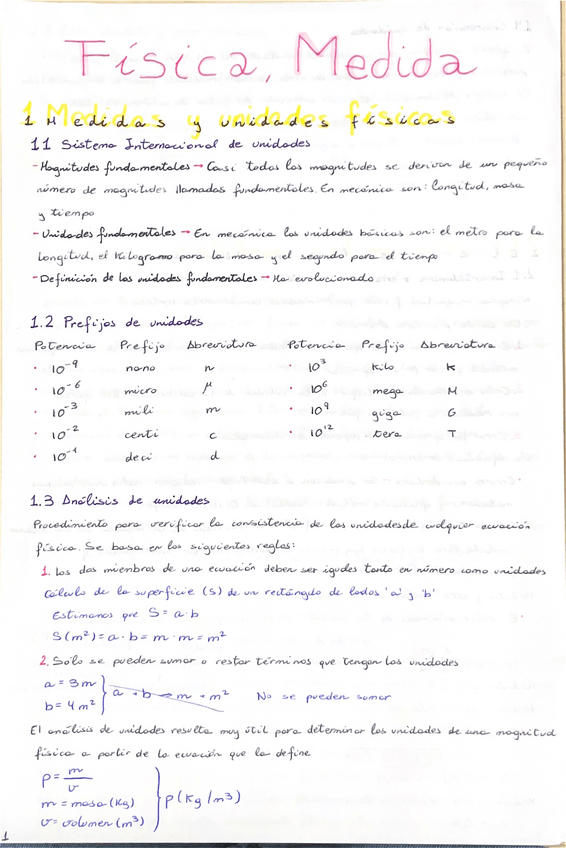 Física, Medida
1 Medidas y unidades físicas
1.1 Sistema Internacional de unidades
- Magnitudes fundamentales → Casi todas las magnitudes se derivan de un pequeño
número de magnitudes llamadas fundamentales. En mecánica son: Longitud, masa
y tiempo
- Unidades fundamentales → En mecánica las unidades básicas son: el metro para la
Longitud, el Kilogramo para la masa y el segundo para el tiempo
- Definición de las unidades fundamentales → Ha evolucionado
1.2 Prefijos de unidades
Potencia Prefijo Abreviatura Potencia Prefijo Abreviatura
· 10⁻⁹ nano n · 10³ kilo K
· 10⁻⁶ micro μ · 10⁶ mega M
· 10⁻³ mili m · 10⁹ giga G
· 10⁻² centi c · 10¹² tera T
· 10⁻¹ deci d
1.3 Análisis de unidades
Procedimiento para verificar la consistencia de las unidadesde cualquier ecuación
física. Se basa en las siguientes reglas:
1. Los dos miembros de una ecuación deben ser iguales tanto en número como unidades
Cálculo de la superficie (S) de un rectángulo de lados 'a' y 'b'
Estimamos que S = a·b
S(m²) = a·b = m·m = m²
2. Sólo se pueden sumar o restar términos que tengan las unidades
a = 3m
b = 4m² } a + b → m + m² No se pueden sumar
El análisis de unidades resulta muy útil para determinar las unidades de una magnitud
física a partir de la ecuación que la define
ρ = m/v
m = masa (Kg) } ρ (Kg/m³)
v = volumen (m³)
1